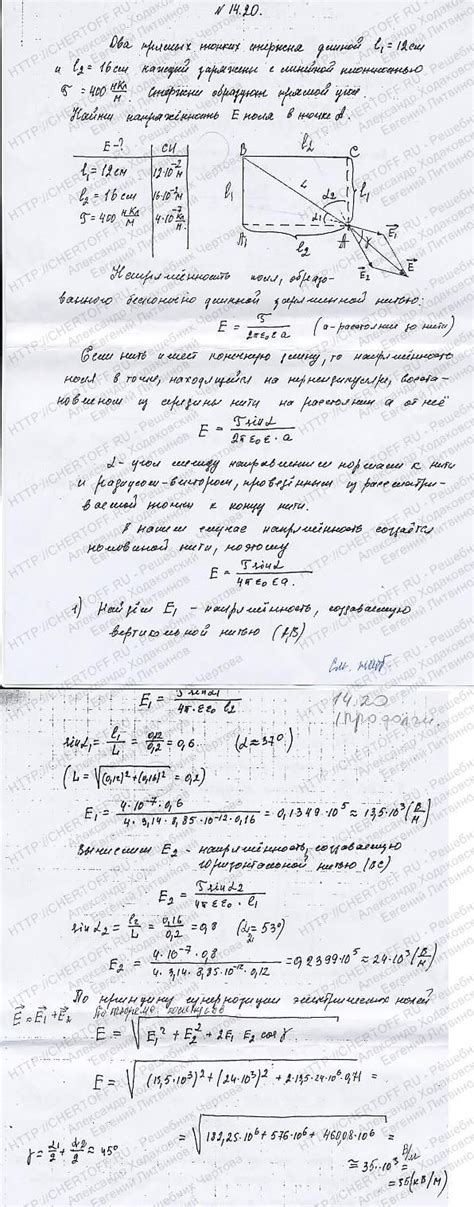 N 14.20.
Два прямых тонких стержня длиной l₁ = 12см
и l₂ = 16см каждый заряжены с линейной плотностью
τ = 400 нКл/м. Стержни образуют прямой угол.
Найти напряжённость E поля в точке A.
E-? СИ
l₁ = 12см 12·10⁻² м
l₂ = 16см 16·10⁻² м
τ = 400 нКл/м 4·10⁻⁷ Кл/м
B l₂ C
l₁ L α₂ l₁
α₁
A₁ l₂ A γ E₁
E₂ E
Напряжённость поля, образо-
ванного бесконечно длинной заряженной нитью:
E = τ/2πε₀εa (a - расстояние до нити)
Если нить имеет конечную длину, то напряжённость
поля в точке, находящейся на перпендикуляре, восста-
новленном из середины нити на расстоянии a от неё
E = τ sinα/2πε₀ε·a
α - угол между направлением нормали к нити
и радиусом-вектором, проведённым из рассматри-
ваемой точки к концу нити.
В нашем случае напряжённость создаётся
половиной нити, поэтому
E = τ sinα/4πε₀εa.
1) Найдём E₁ - напряжённость, создаваемую
вертикальной нитью (A₁B)
См. на об.
14.20
(продолж.
E₁ = τ sinα₁/4π·εε₀ l₂
sinα₁ = l₁/L = 0,12/0,2 = 0,6. (α≈37°)
(L = √(0,12)² + (0,16)² = 0,2)
E₁ = 4·10⁻⁷·0,6/4·3,14·8,85·10⁻¹²·0,16 = 0,1349·10⁵ ≈ 13,5·10³ (В/м)
Вычислим E₂ - напряжённость, создаваемую
горизонтальной нитью (BC)
E₂ = τ sinα₂/4πεε₀·l₁
sinα₂ = l₂/L = 0,16/0,2 = 0,8 (α₂≈53°)
E₂ = 4·10⁻⁷·0,8/4·3,14·8,85·10⁻¹²·0,12 = 0,2399·10⁵ ≈ 24·10³ (В/м)
По принципу суперпозиции электрических полей
E = E₁ + E₂ По теореме косинусов
E = √E₁² + E₂² + 2E₁E₂ cosγ
E = √(13,5·10³)² + (24·10³)² + 2·13,5·24·10⁶·0,71 =
γ = α₁/2 + α₂/2 ≈ 45° = √182,25·10⁶ + 576·10⁶ + 460,08·10⁶ =
≅ 35·10³ В/м =
= 35 (кВ/м)
HTTP://CHERTOFF.RU - Решебник Чертова
Александр Ходаковский
Евгений Литвинов